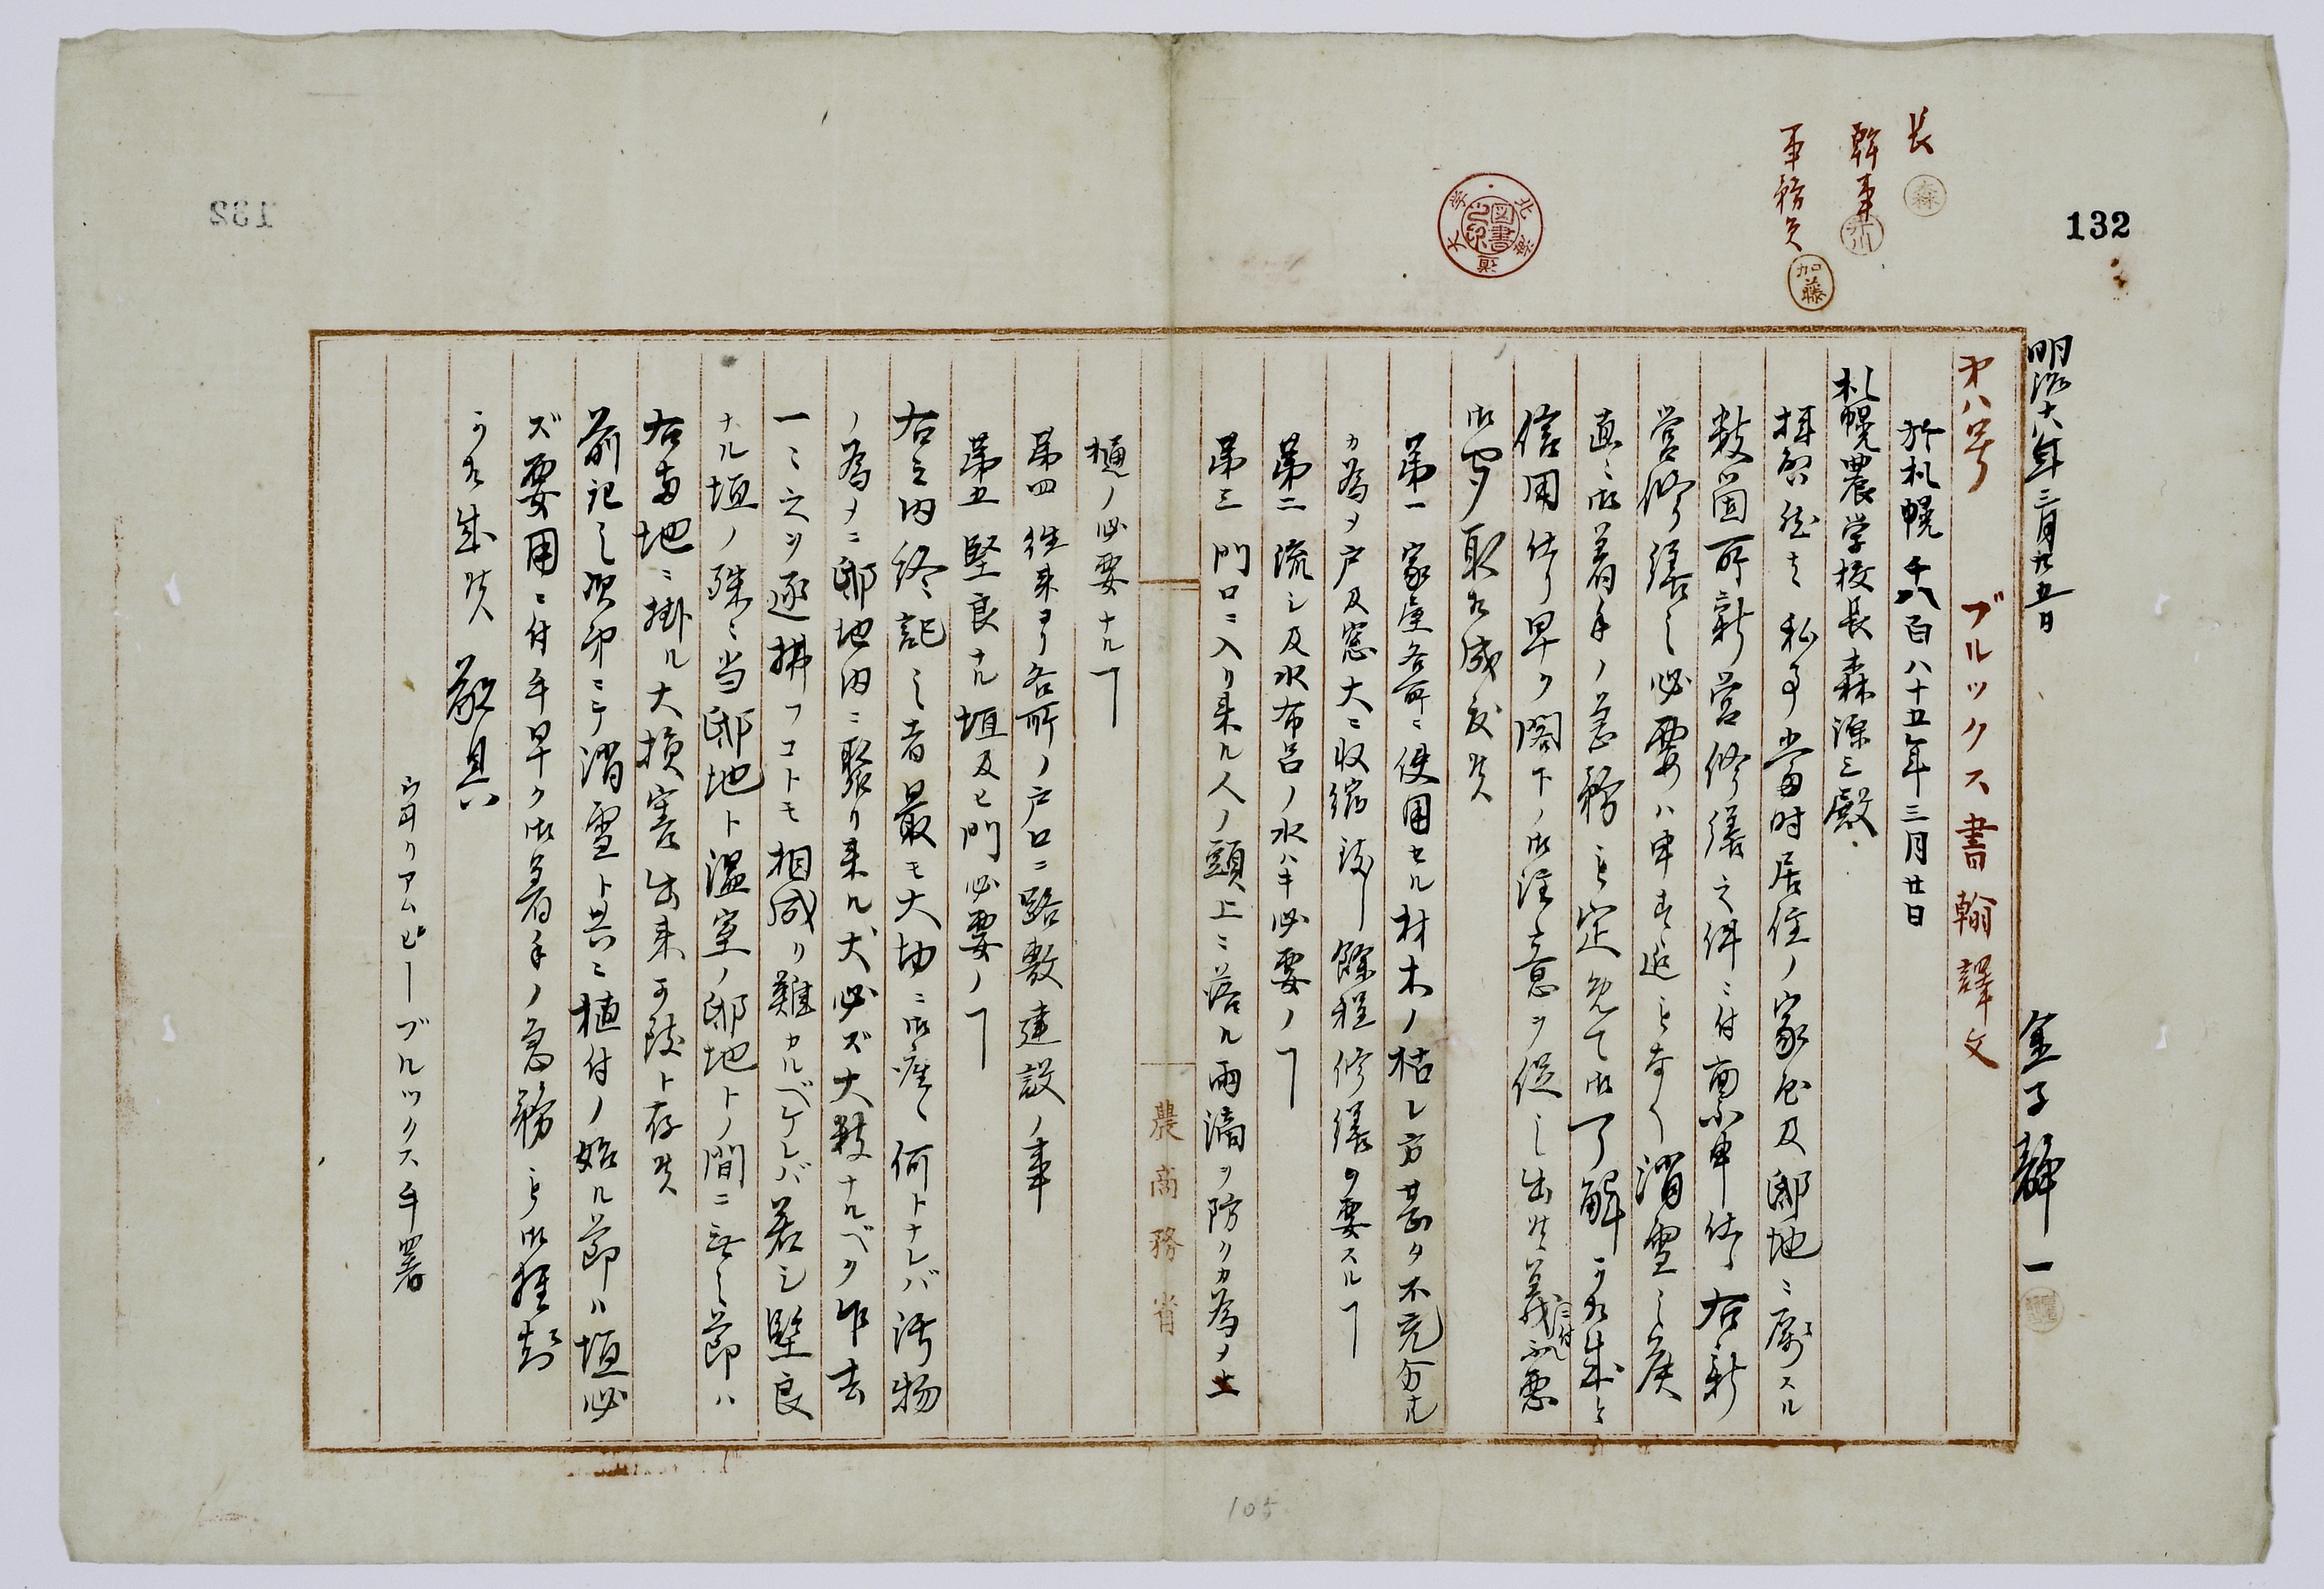 132
長 森
幹事
事務員 加藤
北海道大学図書之印
明治十八年三月廿五日 金子静一
才八号 ブルックス書翰譯文
於札幌千八百八十五年三月廿日
札幌農学校長森源三殿
拝啓然ハ私事當時居住ノ家屋及邸地ニ属スル
数箇所新営修繕之件ニ付禀申仕候右新
営修繕之必要ハ申迄モ無ク消雪之候
直ニ御着手ノ急務ト定メテ御了解可相成ト
信用仕リ早ク閣下ノ御注意ヲ促シ出候義ニ付不悪
御聞取相成度候
第一 家屋各所ニ使用セル材木ノ枯レ方甚タ不充分ナル
カ為メ戸及窓大ニ収縮致シ餘程修繕ヲ要スルヿ
第二 流シ及水布呂ノ水ハキ必要ノヿ
第三 門口ニ入リ来ル人ノ頭上ニ落ル雨滴ヲ防クカ為メノ土
樋ノ必要ナルヿ
第四 往来ヨリ各所ノ戸口ニ路敷建設ノ事
第五 堅良ナル垣及ヒ門必要ノヿ
右之内終記之者最モ大切ニ御座候何トナレバ汚物
ノ為メニ邸地内ニ聚リ来ル犬必ズ大数ナルベク乍去
一々之ヲ逐拂フコトモ相成リ難カルベケレバ若シ堅良
ナル垣ノ殊ニ当邸地ト温室ノ邸地トノ間ニ無之節ハ
右両地ニ掛ル大損害出来可致ト存候
前記之次第ニテ消雪ト共ニ植付ノ始ル節ハ垣必
ズ要用ニ付早ク御着手ノ急務ト御推知
可相成候 敬具
ウヰリアムピーブルックス手署
農商務省
105